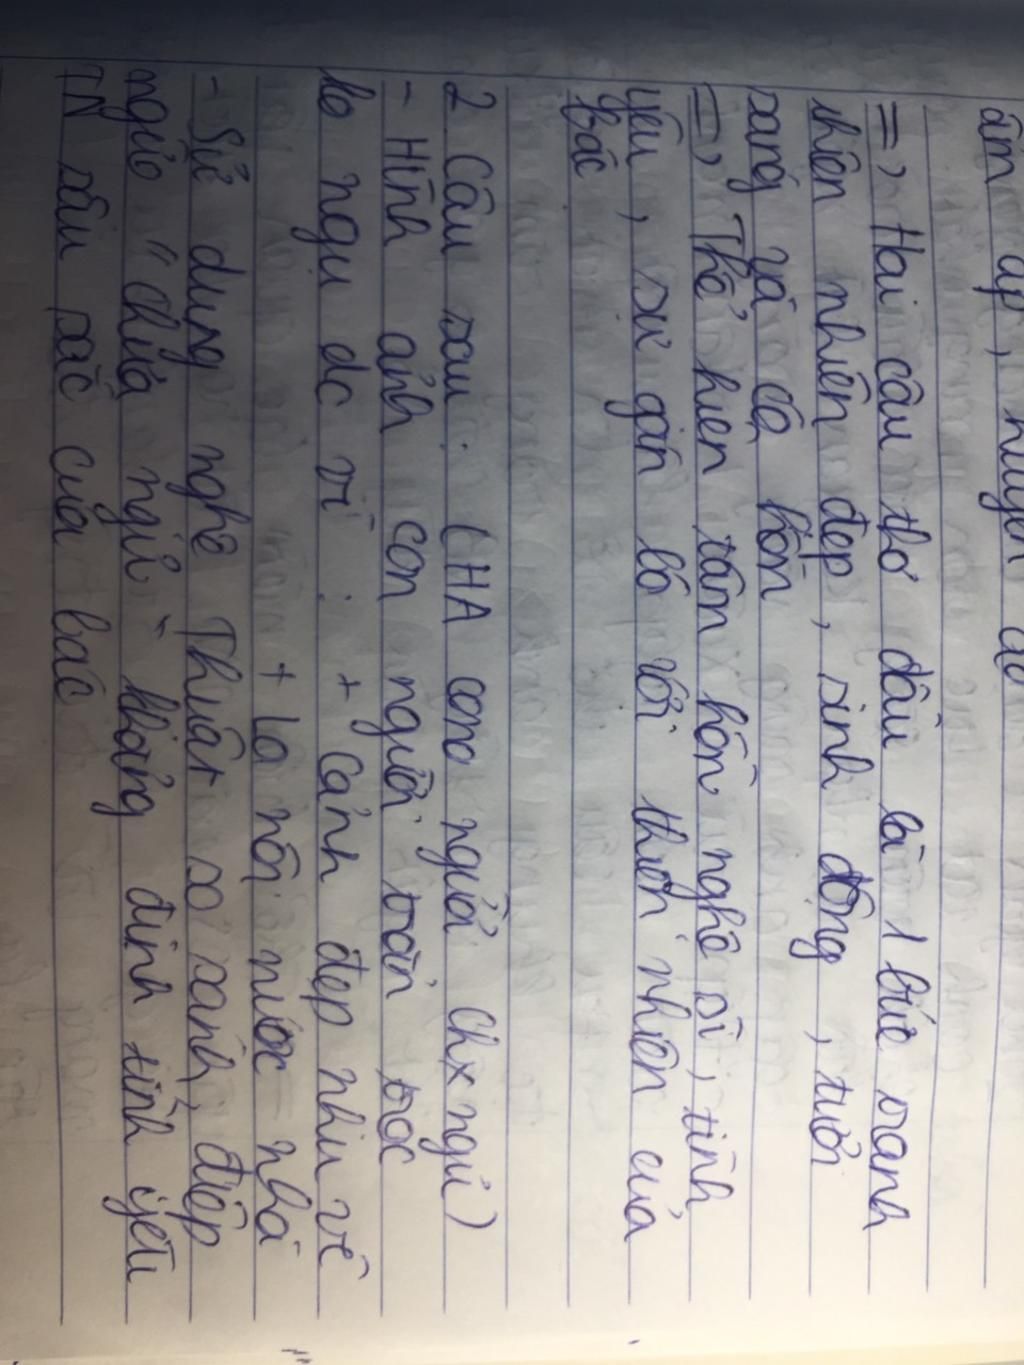 ấm áp, huyền ảo
=, Hai câu thơ đầu là 1 bức tranh
thiên nhiên đẹp, sinh động, tươi
sáng và có hồn
=, Thể hiện tâm hồn nghệ sĩ, tình
yêu, sự gắn bó với thiên nhiên của
Bác
2 Câu sau: (HA con người chx ngủ)
- Hình ảnh con người trằn trọc
ko ngủ đc vì: + Cảnh đẹp như vẽ
+ Lo nỗi nước nhà
- Sử dụng nghệ Thuật so sánh, điệp
ngữ "chưa ngủ" khẳng định tình yêu
TN sâu sắc của bác